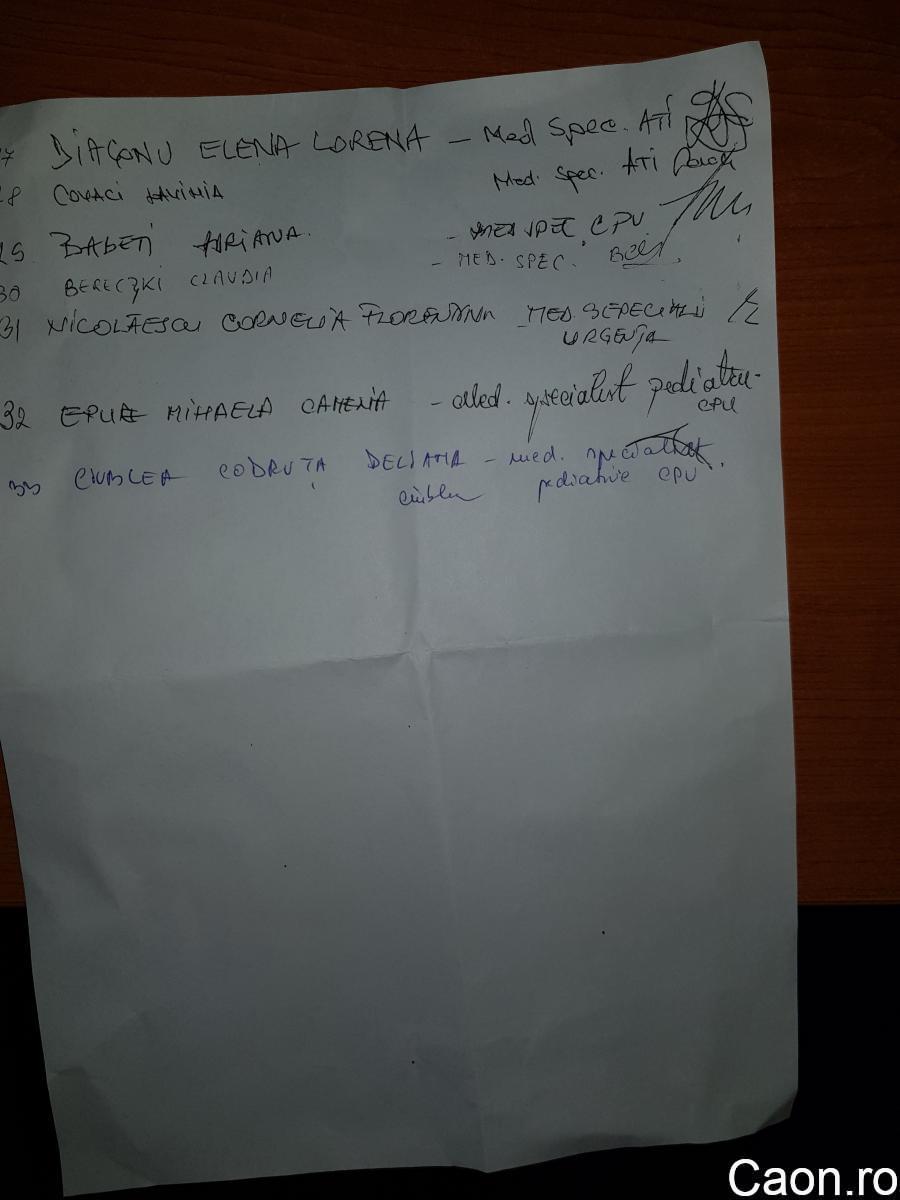 7 DIACONU ELENA LORENA - Med Spec. ATI
28 COVACI LAVINIA Med. Spec. ATI
29 BABETI ADRIANA. - MED SPEC. CPU
30 BERECZKI CLAUDIA - MED. SPEC.
31 NICOLAESCU CORNELIA FLORENTINA MED. SEPECIALI
URGENȚA
32 EPURE MIHAELA CAMELIA - Med. specialist pediatrie-
CPU
33 CIUBLEA CODRUȚA DELIANA - med. specialist
pediatrie CPU
Caon.ro